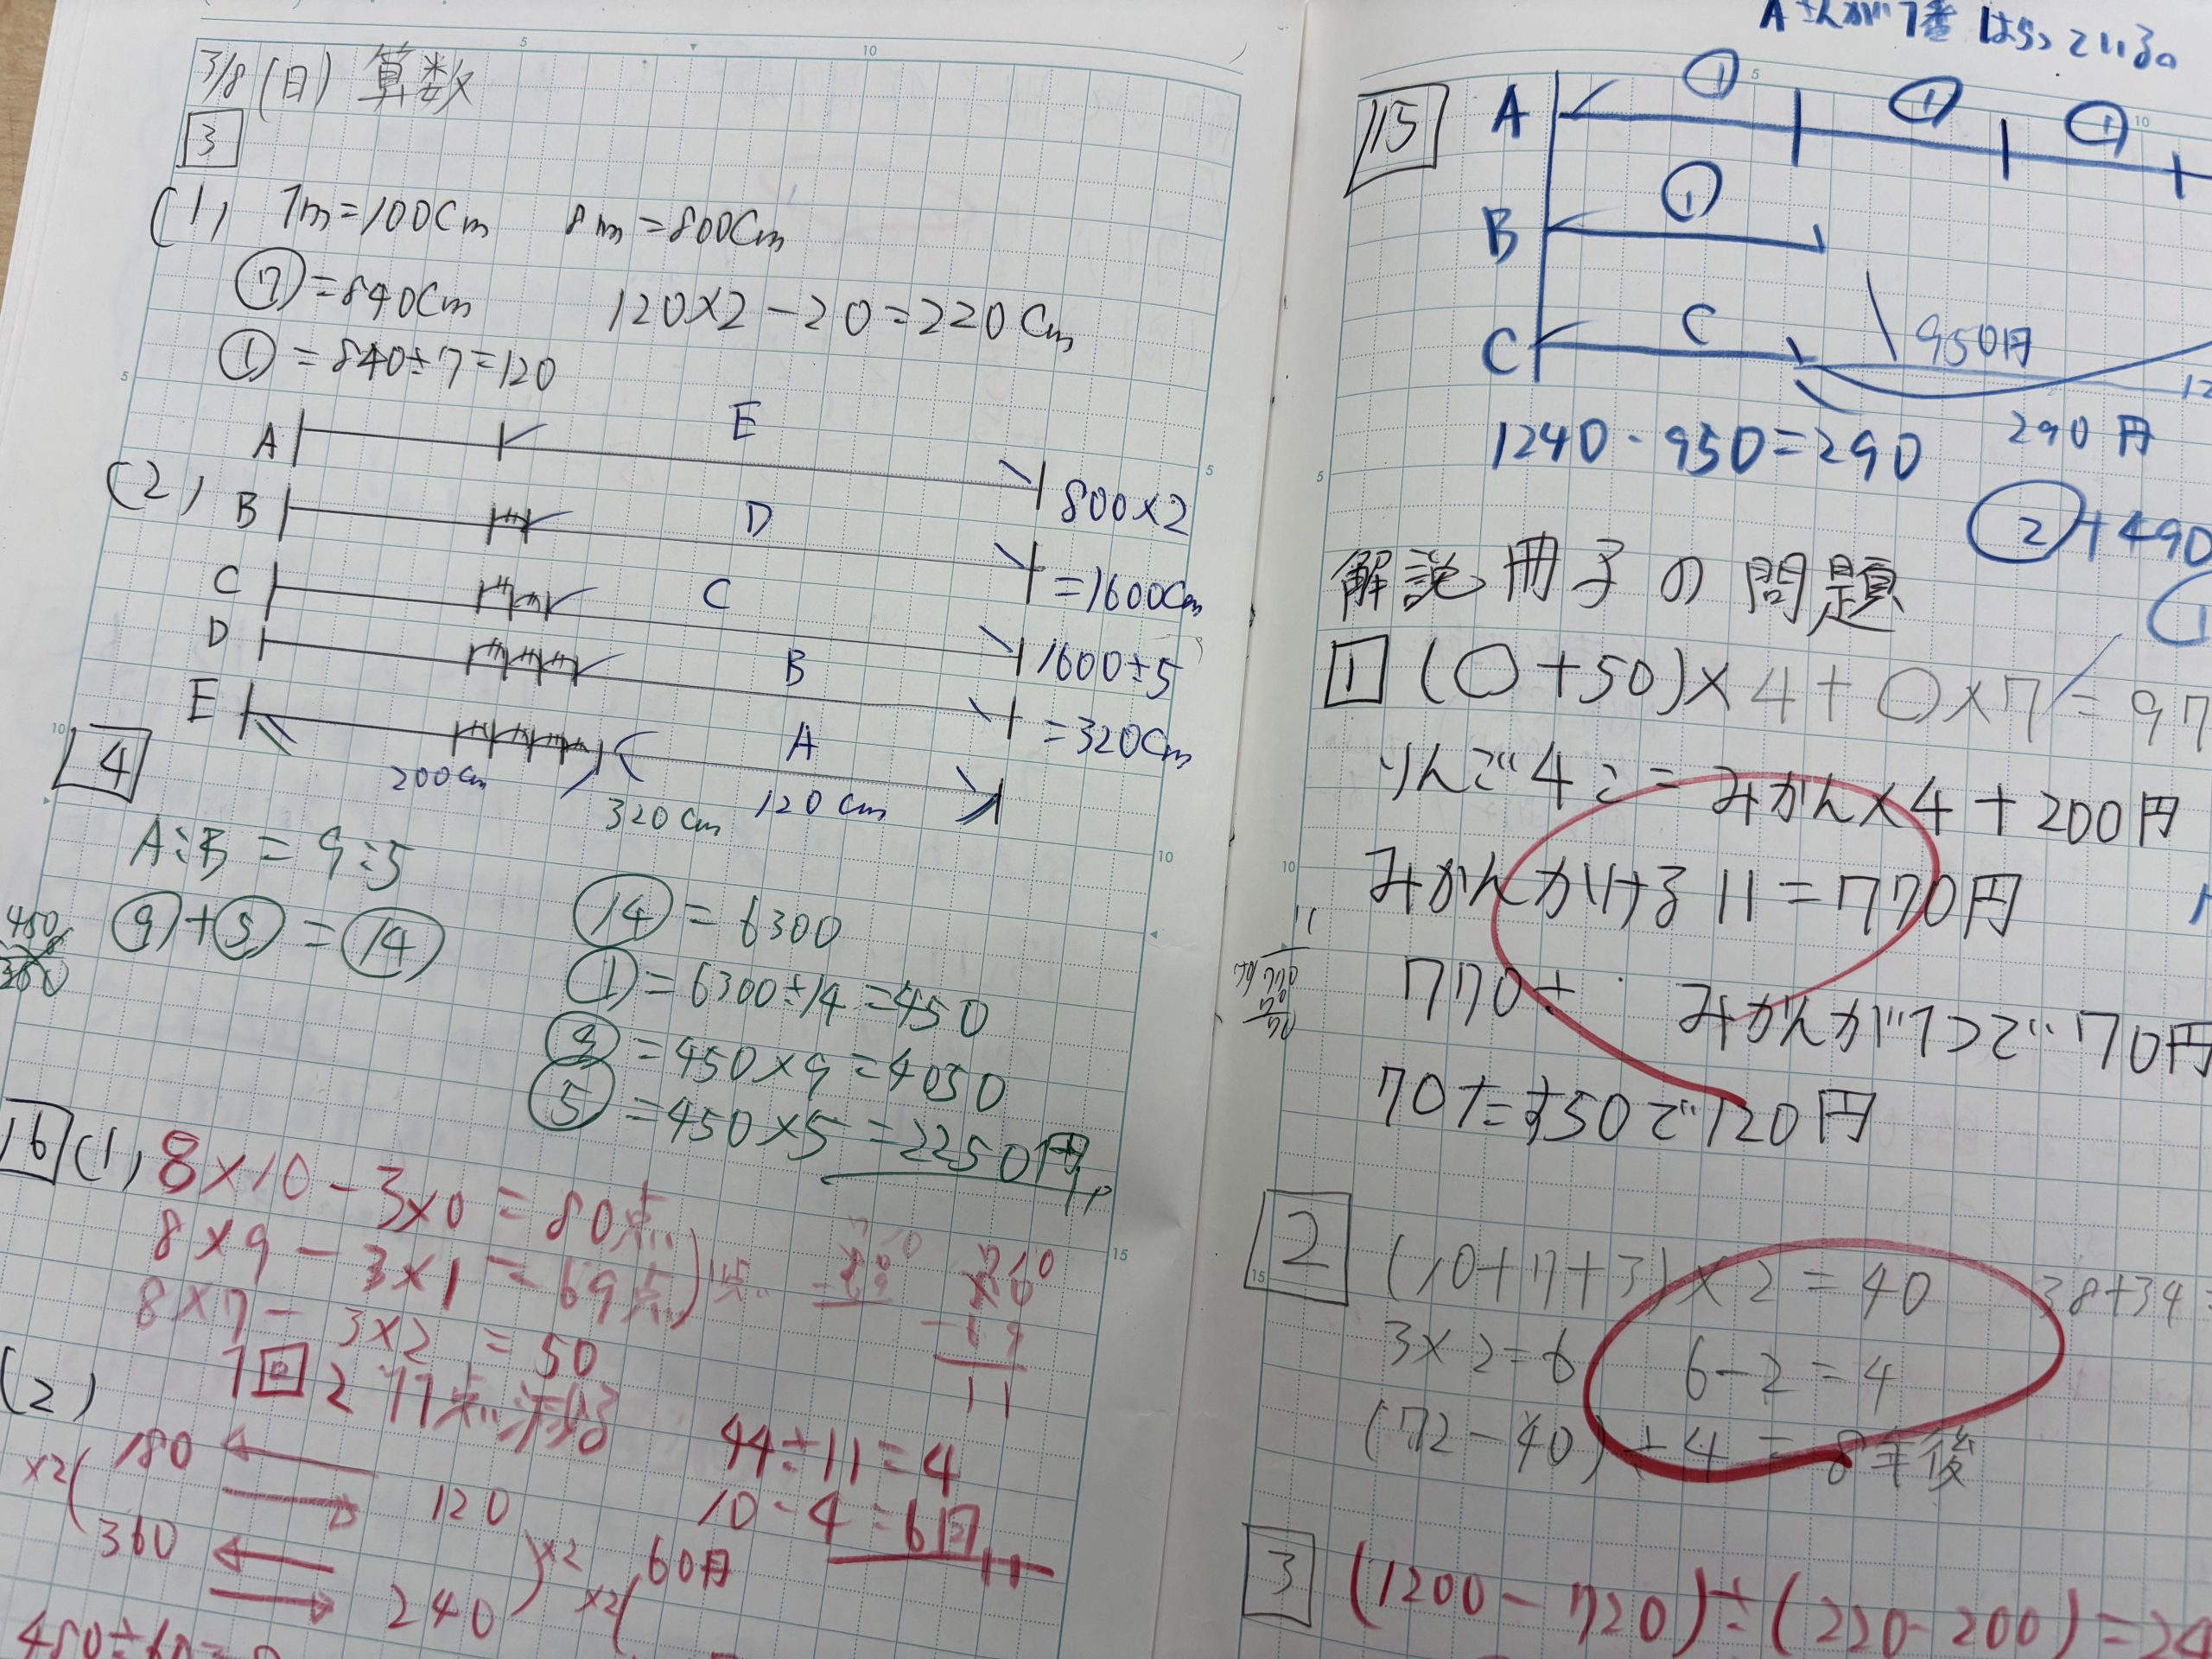 3/8(日) 算数
3
(1) 1m=100cm 8m=800cm
⑦=840cm 120×2-20=220cm
①=840÷7=120
(2)
A E 800×2
B D =1600cm
C C 1600÷5
D B =320cm
E A
200cm 320cm 120cm
4
A:B=9:5
⑨+⑤=⑭ ⑭=6300
①=6300÷14=450
⑨=450×9=4050
⑤=450×5=2250円
450
16
(1) 8×10-3×0=80点
8×9-3×1=69点
8×7-3×2=50
1回211点減る
44÷11=4
10-4=6回
-69
11
(2)
×2 180 120
360 240 ×2 ×2 60円
Aさんが1番はらっている。
115
A ① ① ①
B ①
C C 950円
290円
1240-950=290
②+490
解説冊子の問題
1 (○+50)×4+○×7=97
りんご4こ=みかん×4+200円
みかんかける11=770円
770÷ みかんが1つで70円
70たす50で120円
2 (10+7+3)×2=40 38+34
3×2=6 6-2=4
(72-40)÷4=8年後
3 (1200-720)÷(220-200)=24